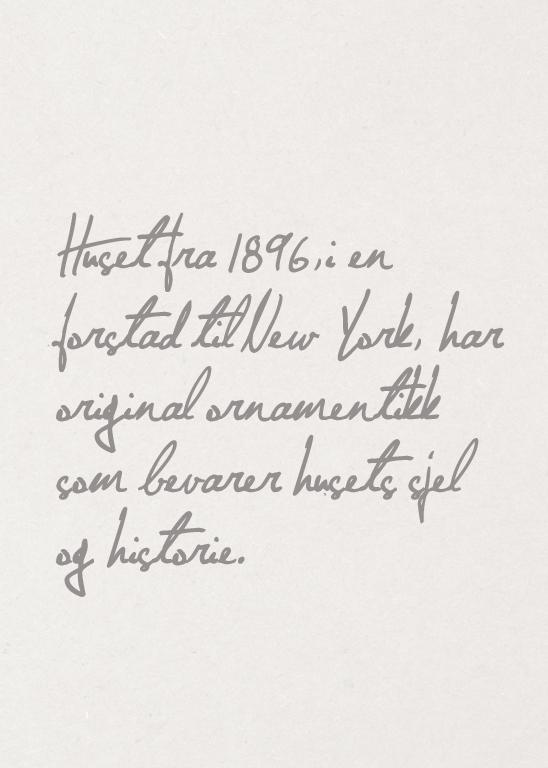 Huset fra 1896, i en
forstad til New York, har
original ornamentikk
som bevarer husets sjel
og historie.